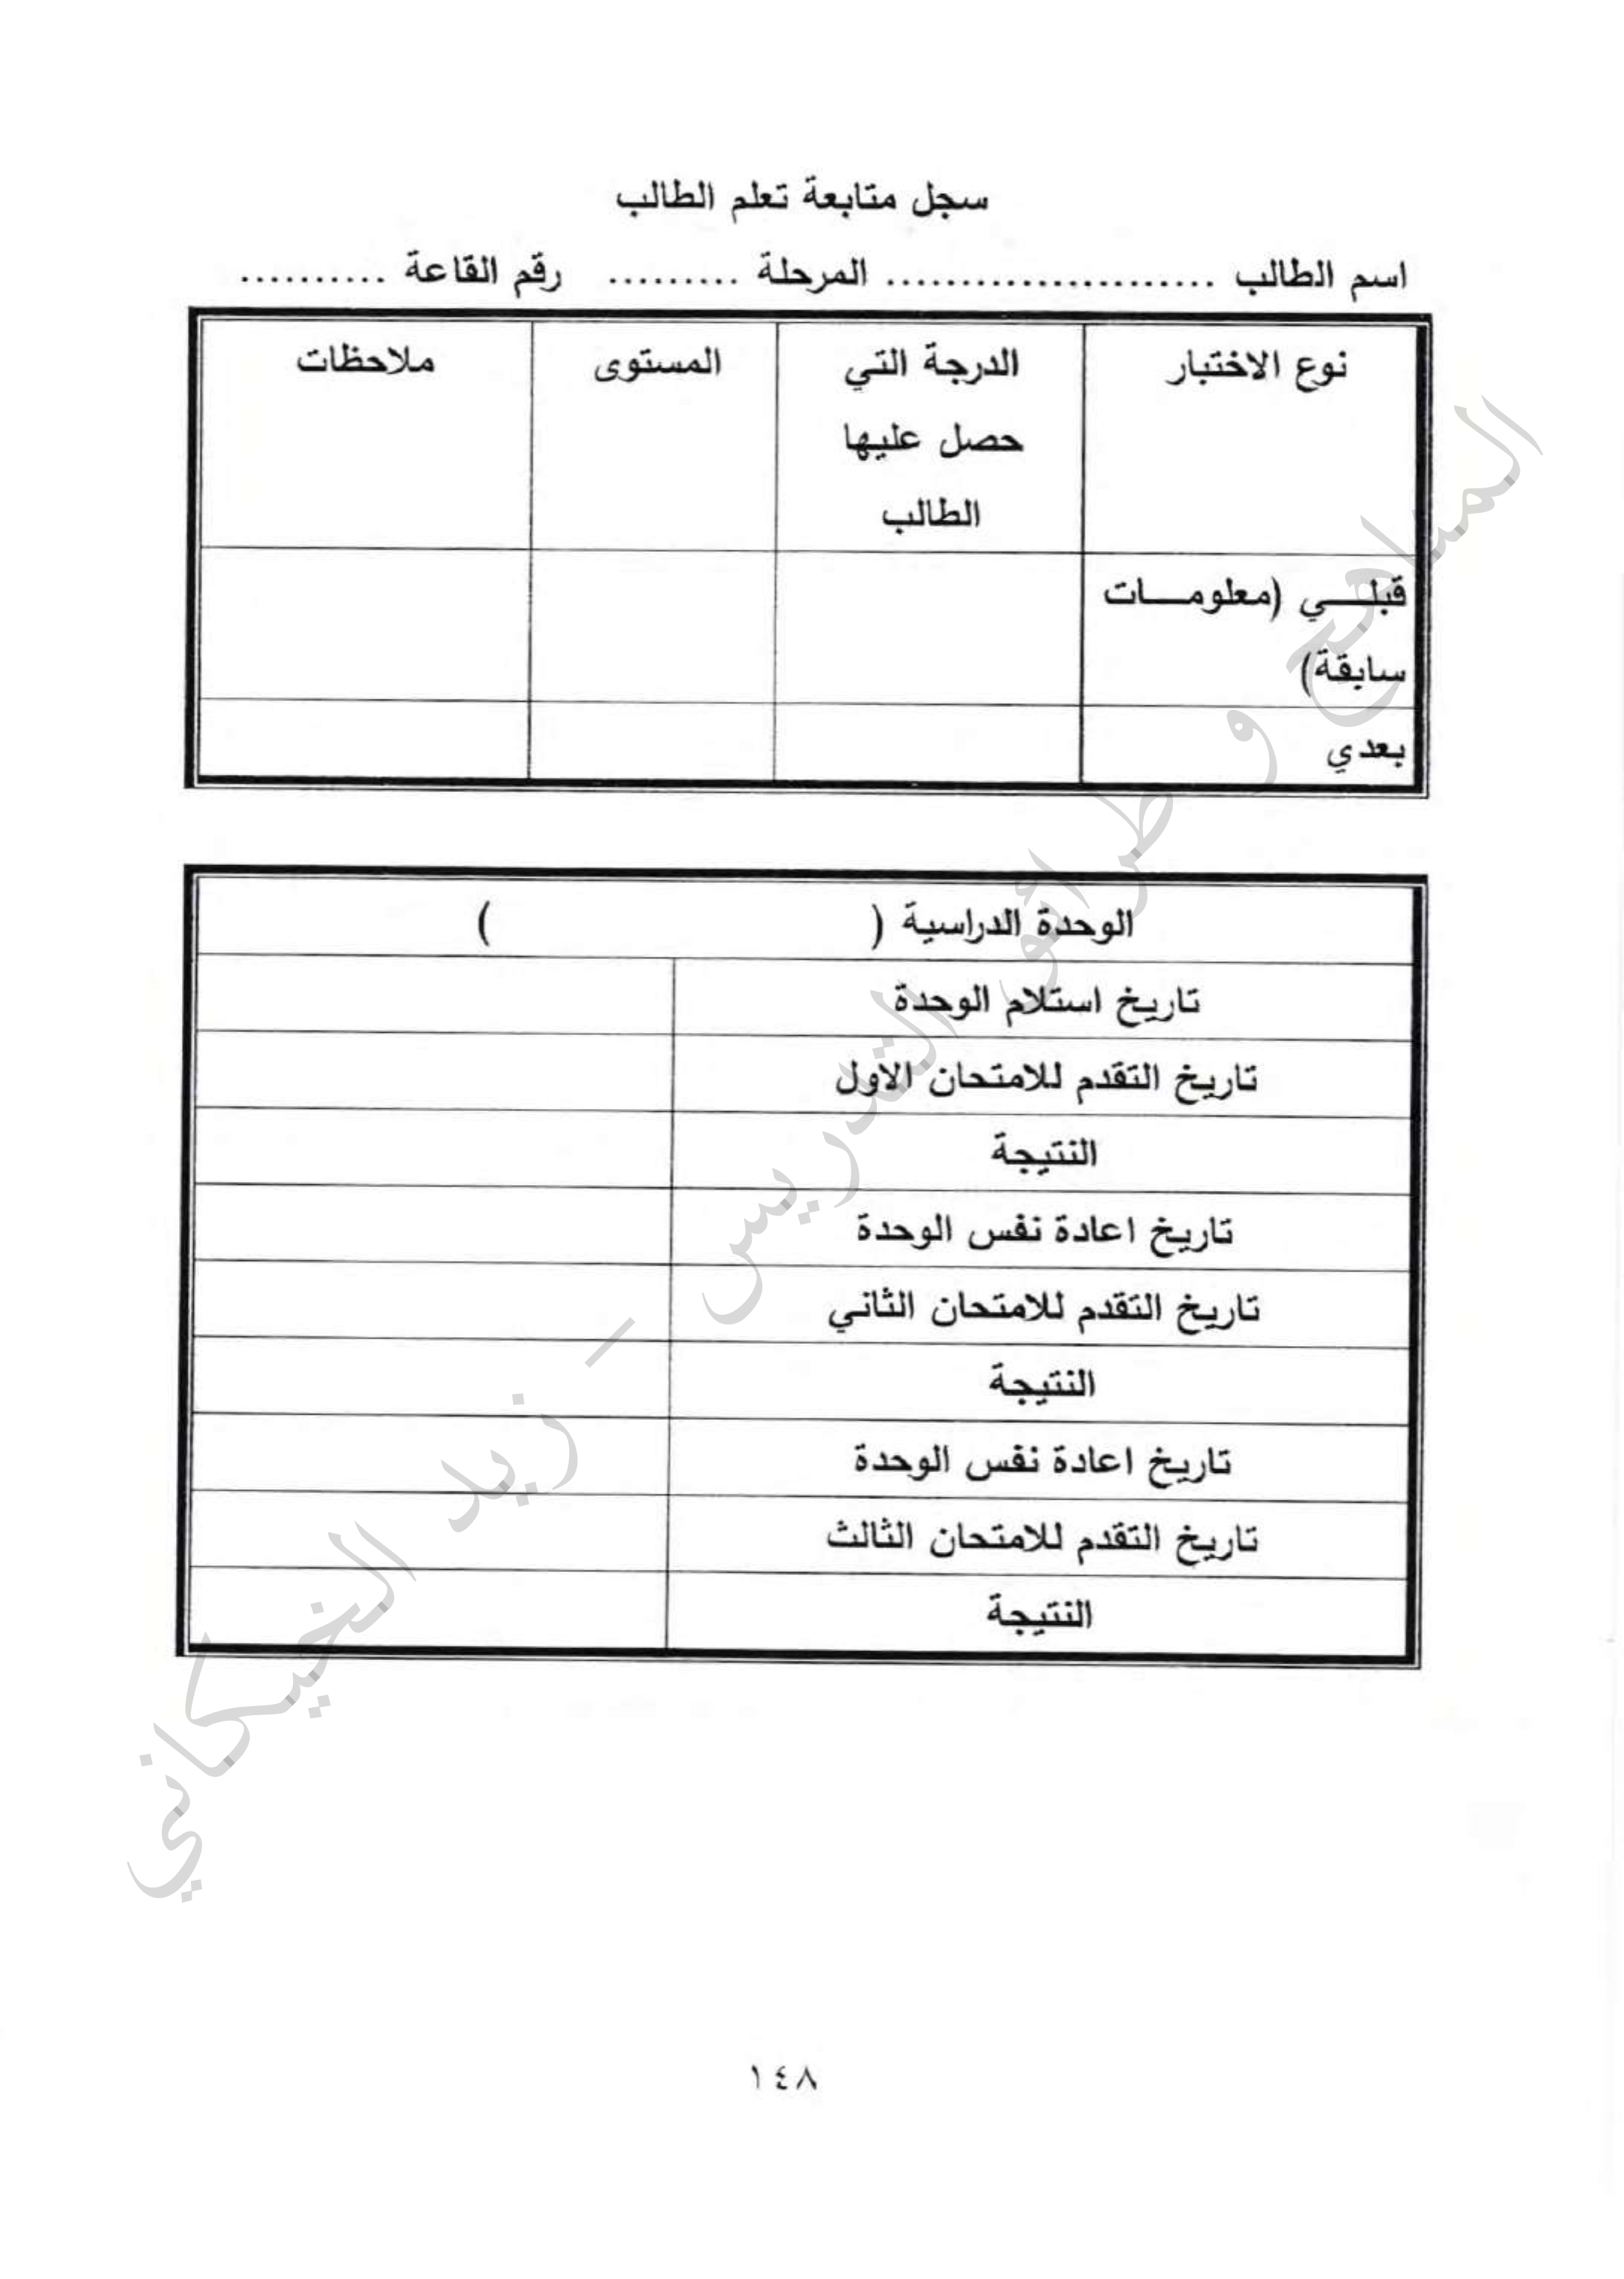 سجل متابعة تعلم الطالب
اسم الطالب ....................... المرحلة ......... رقم القاعة ..........
نوع الاختبار
الدرجة التي
حصل عليها
الطالب
المستوى
ملاحظات
قبلـــي (معلومـــات
سابقة)
بعدي
الوحدة الدراسية ( )
تاريخ استلام الوحدة
تاريخ التقدم للامتحان الاول
النتيجة
تاريخ اعادة نفس الوحدة
تاريخ التقدم للامتحان الثاني
النتيجة
تاريخ اعادة نفس الوحدة
تاريخ التقدم للامتحان الثالث
النتيجة
المناهج و طرائق التدريس - زيد الخيكاني
١٤٨